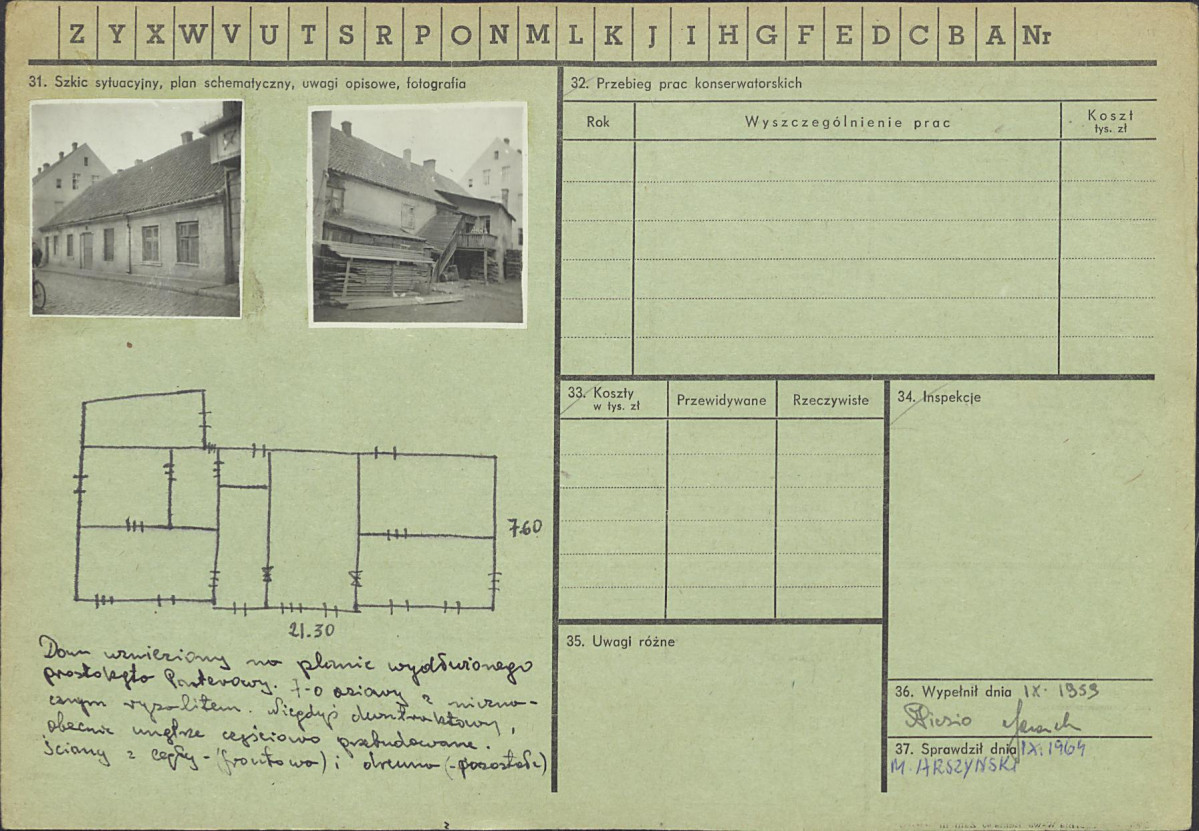 Z Y X W V U T S R P O N M L K J I H G F E D C B A Nr
31. Szkic sytuacyjny, plan schematyczny, uwagi opisowe, fotografia
7.60
21.30
Dom wzniesiony na planie wydłużonego
prostokąta Parterowy. 7-o osiowy z nieznacznym
ryzalitem. Niegdyś dwutraktowy,
obecnie wnętrze częściowo przebudowane.
Ściany z cegły - (frontowa) i drewna (-pozostałe)
32. Przebieg prac konserwatorskich
Rok
Wyszczególnienie prac
Koszt
tys. zł
33. Koszty
w tys. zł
Przewidywane
Rzeczywiste
34. Inspekcje
35. Uwagi różne
36. Wypełnił dnia IX. 1959
37. Sprawdził dnia IX. 1964
M. ARSZYŃSKI